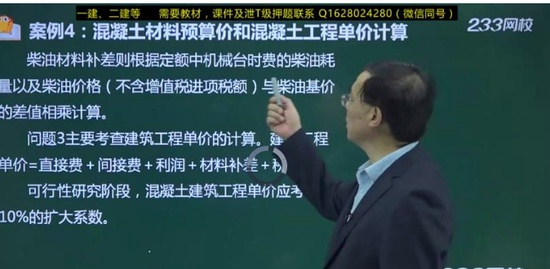 一建、二建等 需要教材，课件及泄T级押题联系 Q1628024280（微信同号）
案例4：混凝土材料预算价和混凝土工程单价计算
233网校
柴油材料补差则根据定额中机械台时费的柴油耗
量以及柴油价格（不含增值税进项税额）与柴油基价
的差值相乘计算。
问题3主要考查建筑工程单价的计算。建 工程
单价=直接费＋间接费＋利润＋材料补差＋
可行性研究阶段，混凝土建筑工程单价应考
10%的扩大系数。